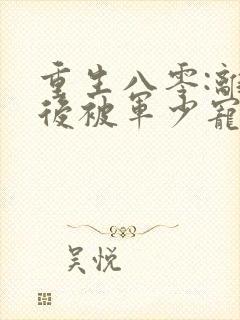 重生八零:離
後被軍少寵
吴悦